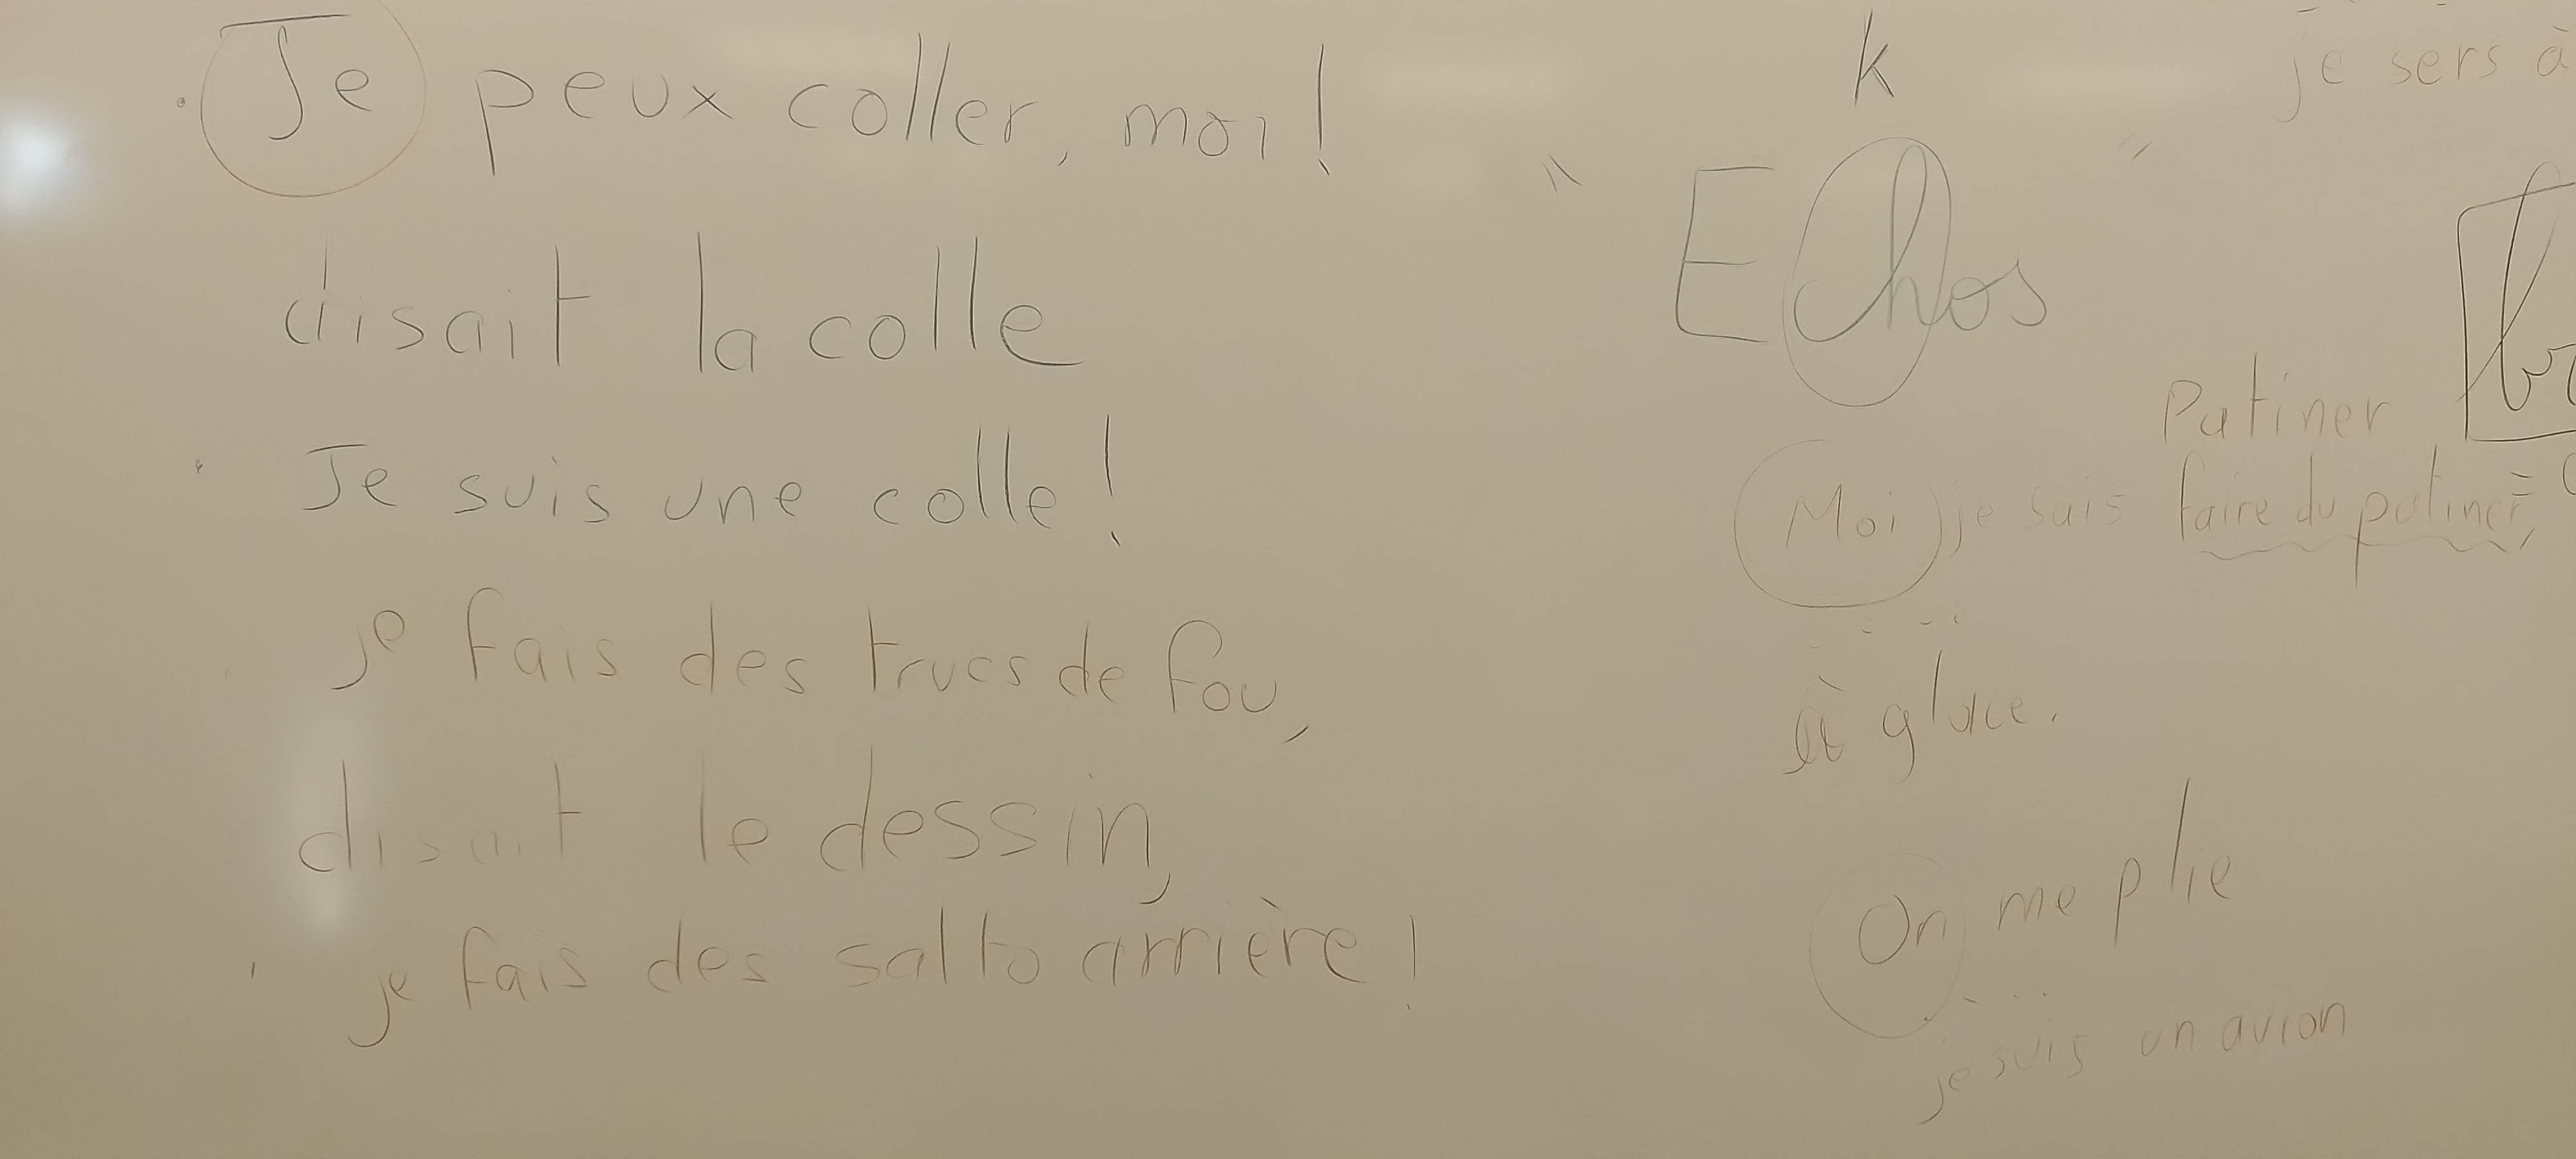 Je peux coller, moi !
disait la colle
Je suis une colle !
je fais des trucs de fou,
disait le dessin,
je fais des salto arrière !
k
" Echos "
je sers à
Patiner
Moi je sais faire du patiner,
à glace.
On me plie
je suis un avion